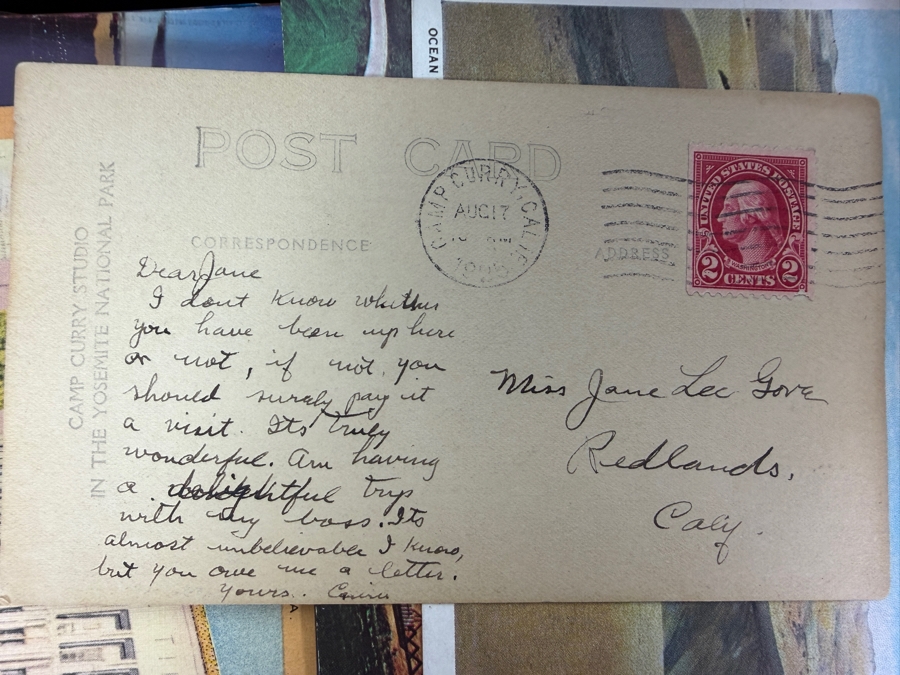 OCEAN
POST CARD
CAMP CURRY, CALIF.
AUG 17
UNITED STATES POSTAGE
WASHINGTON
2 CENTS 2
CORRESPONDENCE
ADDRESS
CAMP CURRY STUDIO
IN THE YOSEMITE NATIONAL PARK
Dear Jane
I dont know whether
you have been up here
or not, if not, you
should surely pay it
a visit. Its truly
wonderful. Am having
a delightful trip
with my boss. Its
almost unbelievable I know,
but you owe me a letter.
Yours.
Miss Jane Lee Gove
Redlands,
Caly.